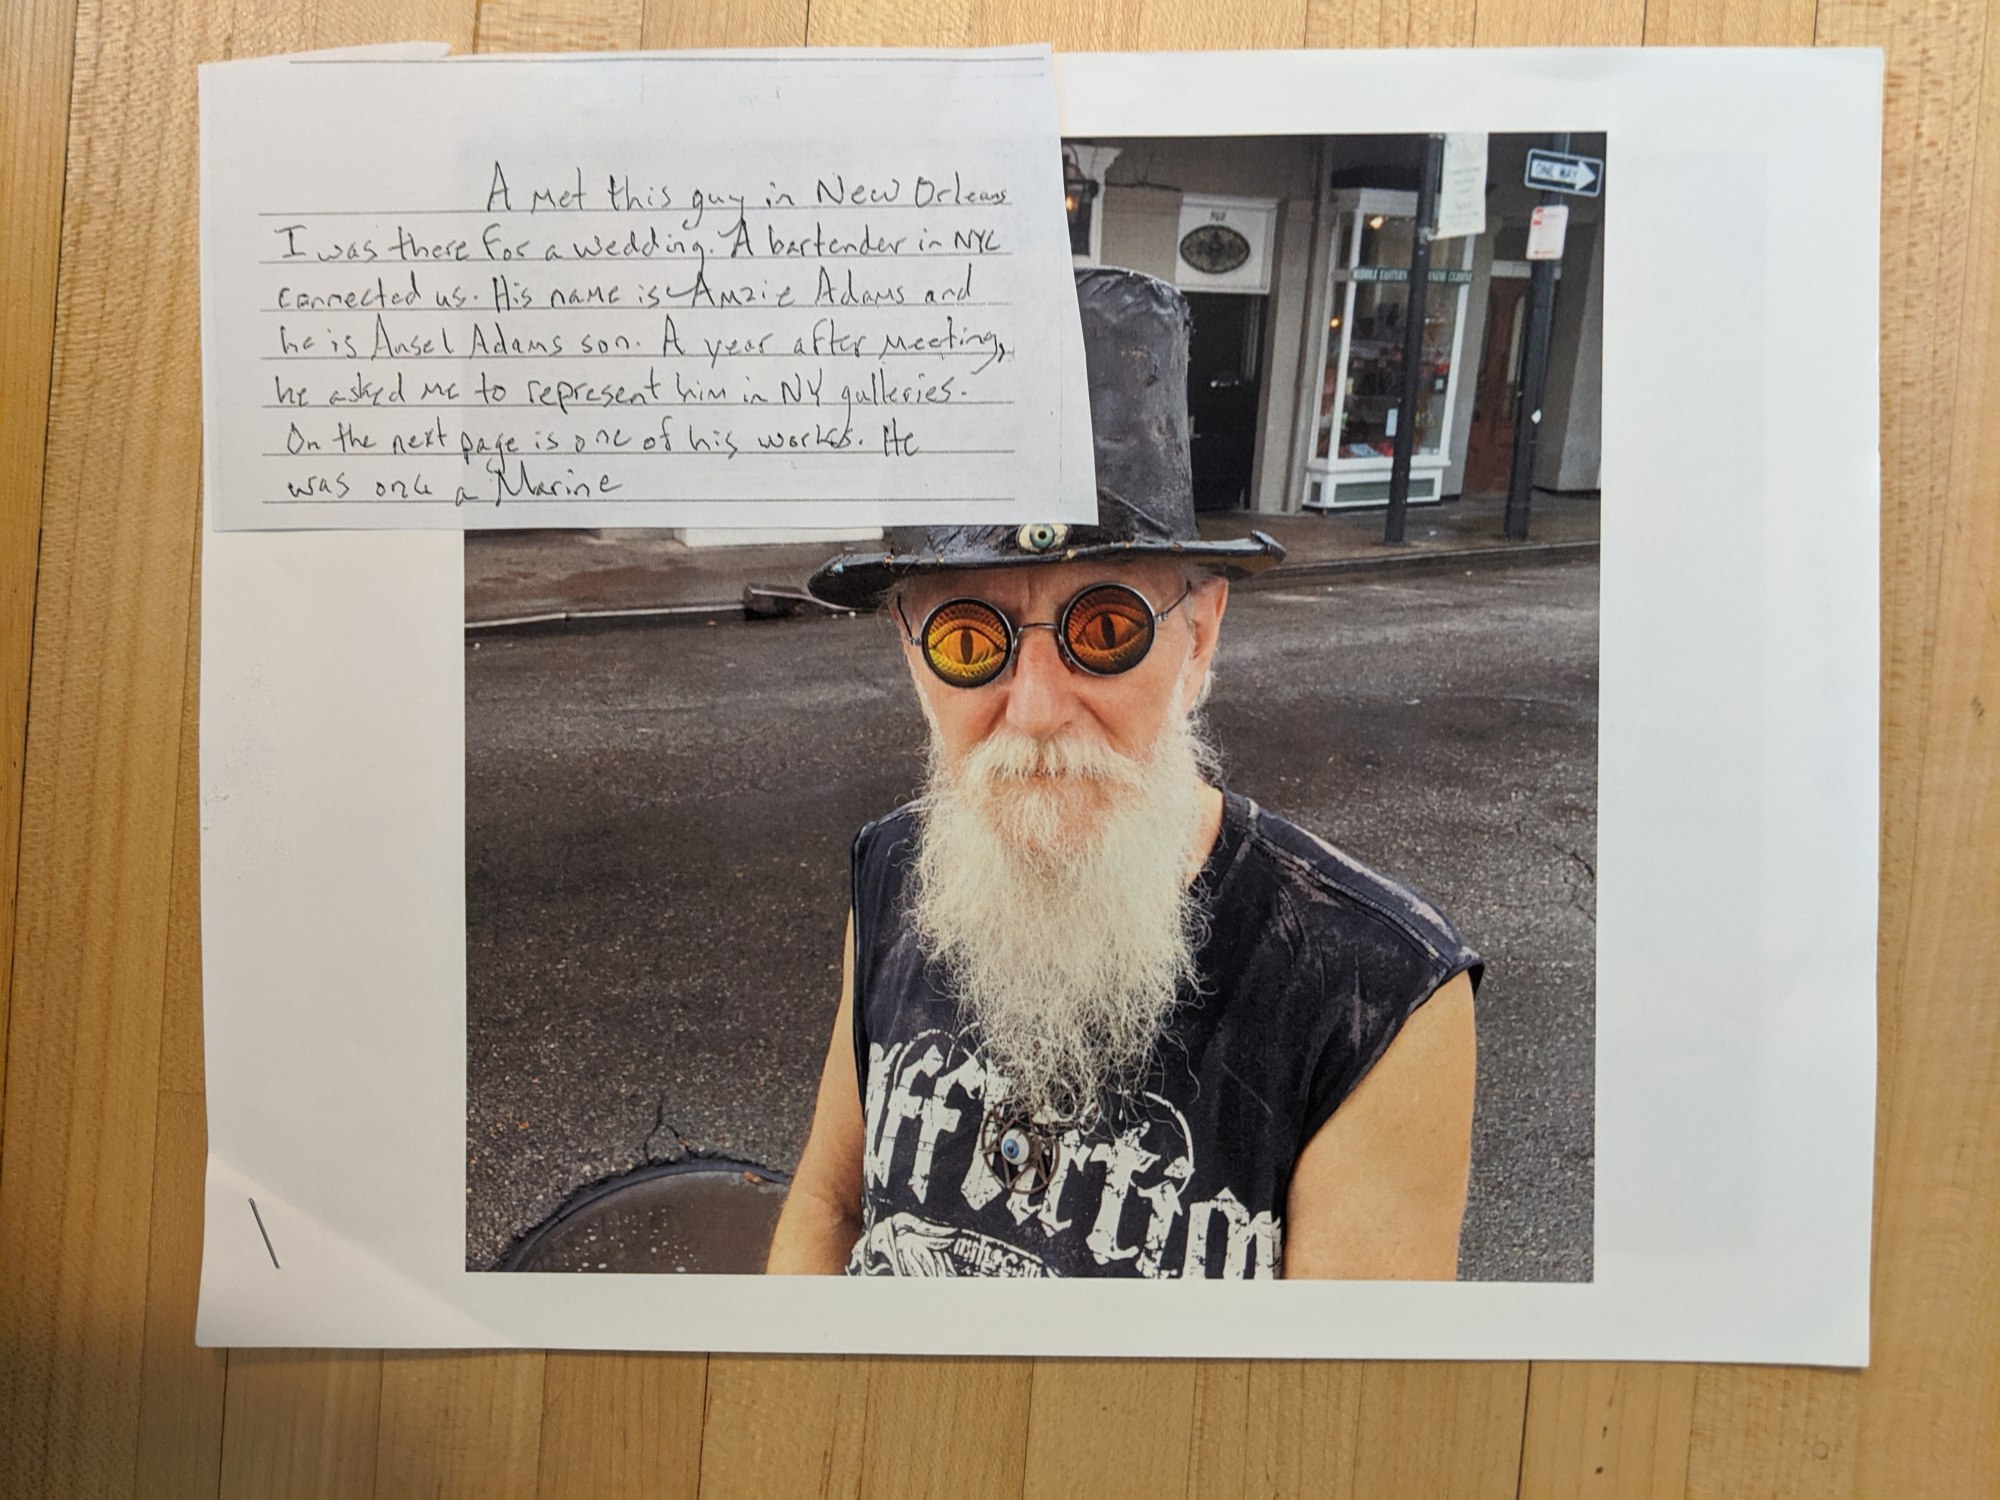 A met this guy in New Orleans
I was there for a wedding. A bartender in NYC
connected us. His name is Amzie Adams and
he is Ansel Adams son. A year after meeting,
he asked me to represent him in NY galleries.
On the next page is one of his works. He
was once a Marine
ONE WAY